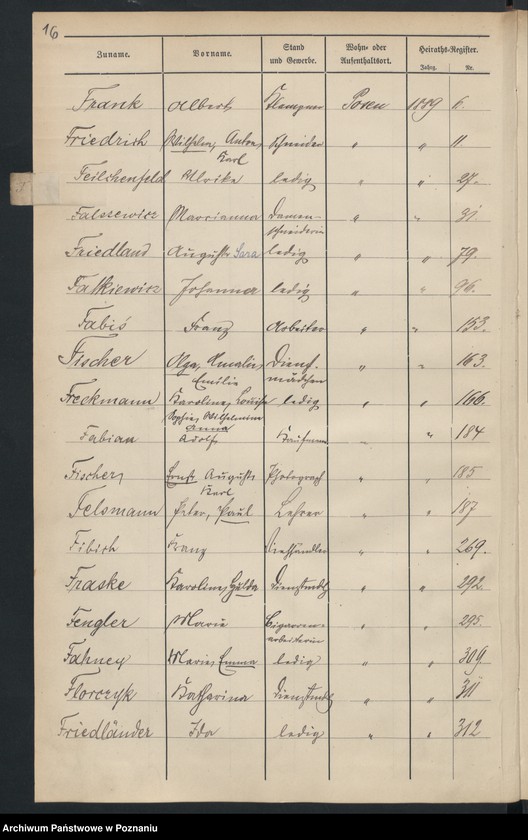 16
Zuname. Vorname. Stand und Gewerbe. Wohn- oder Aufenthaltsort. Heiraths-Register.
Jahrg. Nr.
Frank Albert Klempner Posen 1889 6.
Friedrich Wilhelm, Anton, Karl Schneider " " 11
Feilchenfeld Ulrike ledig " " 27.
Falszewicz Marianna Damen-schneiderin " " 31
Friedland Auguste Sara ledig " " 79.
Fatkiewicz Johanna ledig " " 96.
Fabiś Franz Arbeiter " " 153.
Fischer Olga, Amalie, Emilie Dienst-mädchen " " 163.
Freckmann Karoline, Louise Sophie, Wilhelmine Anna ledig " " 166.
Fabian Adolf Kaufmann " " 184
Fischer, Ernst, Auguste Karl Photograph " " 185
Felsmann Peter, Paul Lehrer " " 187
Fibich Franz Viehhändler " " 269.
Fraske Karoline, Hulda Dienstmdch " " 292.
Fengler Marie Cigarren-arbeiterin " " 295.
Fahney Marie, Emma ledig " " 309.
Florczyk Katharina Dienstmdch " " 311
Friedländer Ida ledig " " 312
Archiwum Państwowe w Poznaniu